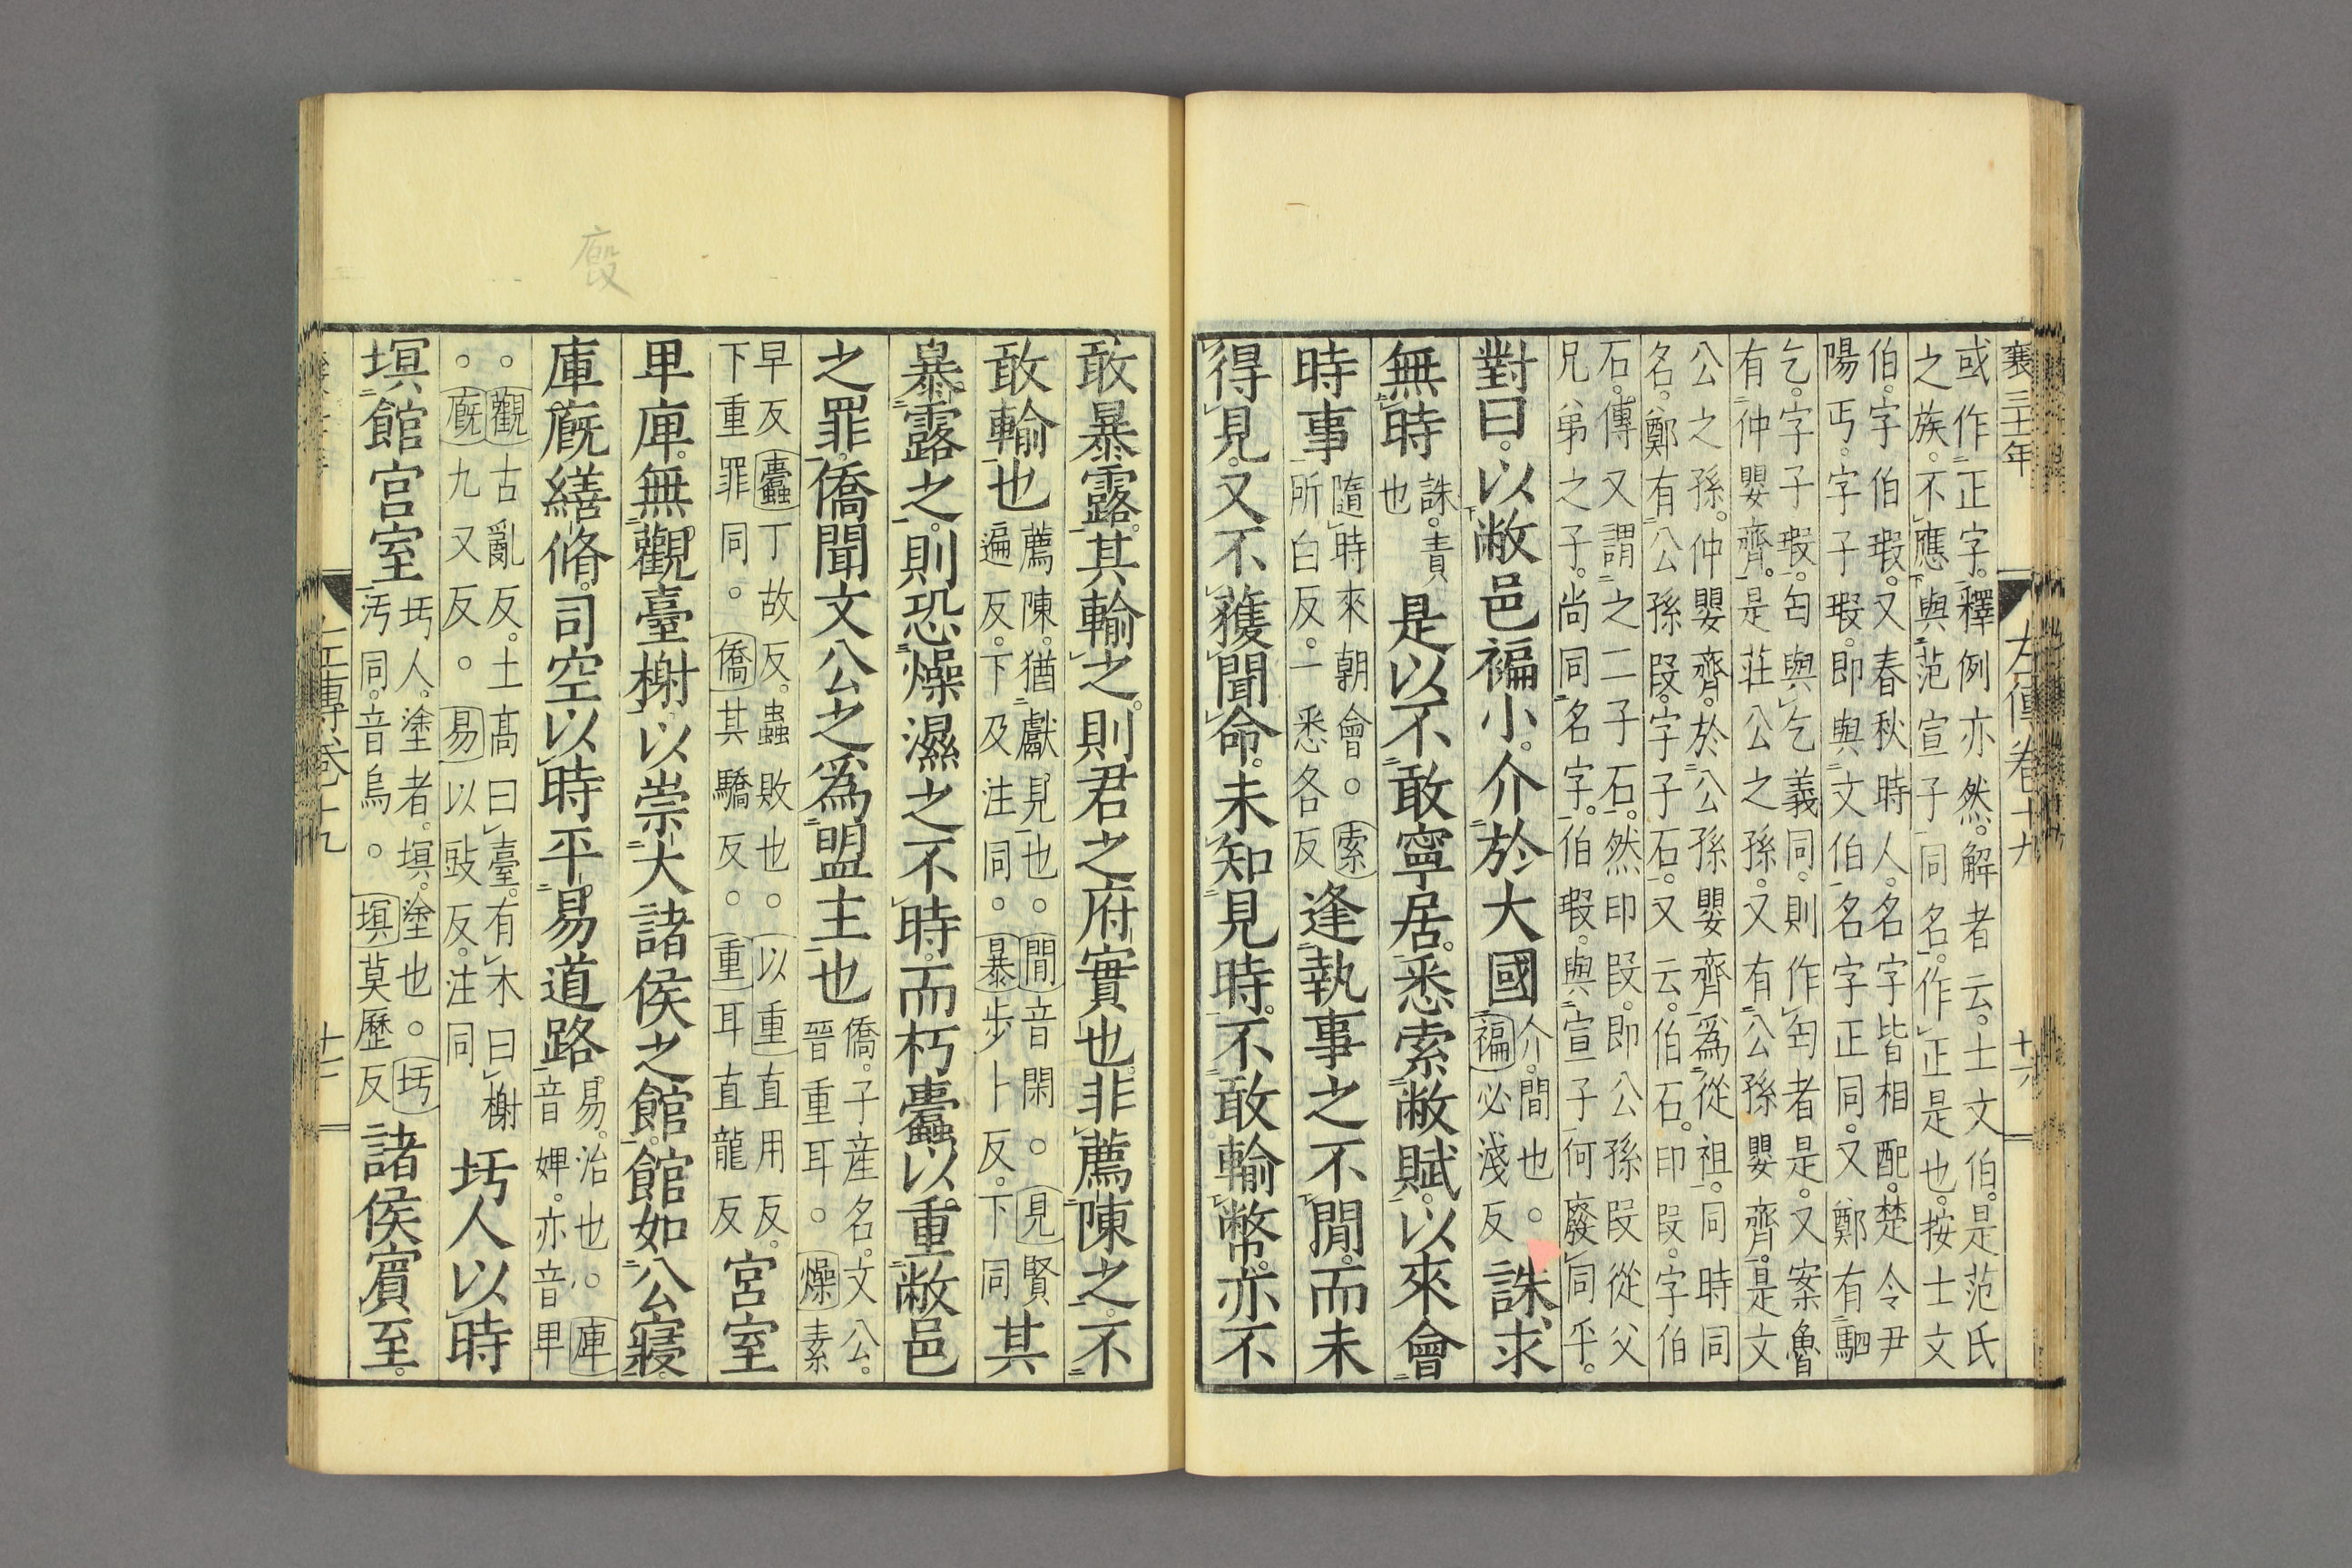 襄三十一年　左傳卷十九　十六
或作正字。釋例亦然。解者云。士文伯。是范氏
之族。不應與范宣子同名。作正是也。按士文
伯。字伯瑕。又春秋時人。名字皆相配。楚令尹
陽丐。字子瑕。即與文伯名字正同。又鄭有駟
乞。字子瑕。匄與乞義同。則作匄者是。又案魯
有仲嬰齊。是莊公之孫。又有公孫嬰齊。是文
公之孫。仲嬰齊。於公孫嬰齊。爲從祖。同時同
名。鄭有公孫段。字子石。又云。伯石。印段。字伯
石。傳又謂之二子石。然印段。即公孫段從父
兄弟之子。尚同名字。伯瑕。與宣子何廢同乎。
對曰。以敝邑褊小。介於大國介。間也。○褊必淺反。誅求
無時誅。責也是以不敢寧居。悉索敝賦。以來會
時事隨時來朝會。○索所白反。一悉各反逢執事之不閒。而未
得見。又不獲聞命。未知見時。不敢輸幣。亦不
敢暴露。其輸之。則君之府實也。非薦陳之。不
敢輸也薦陳。猶獻見也。○閒音閑。○見賢遍反。下及注同。○暴步卜反。下同其
暴露之。則恐燥濕之不時。而朽蠹。以重敝邑
之罪。僑聞文公之爲盟主也僑。子產名。文公。晉重耳。○燥素
早反蠹丁故反。蟲敗也。○以重直用反。下重罪同。○僑其驕反。○重耳直龍反宮室
卑庳。無觀臺榭。以崇大諸侯之館。館如公寢。
庫廐繕脩。司空以時平易道路易。治也。○庳音婢。亦音卑
○觀古亂反。土高曰臺。有木曰榭○廐九又反。○易以豉反。注同圬人以時
塓館宮室圬人。塗者。塓。塗也。○圬汚同。音烏。○塓莫歷反諸侯賓至。
左傳卷十九
廄